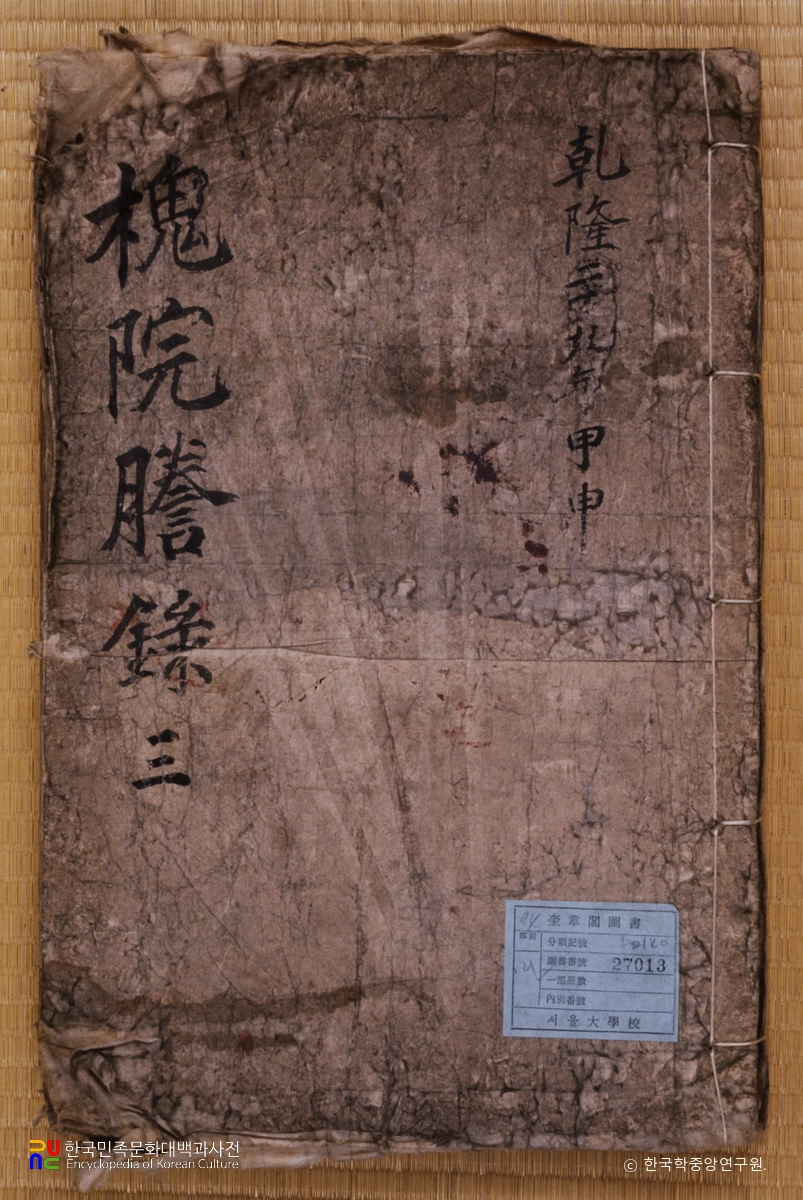 乾隆二十九年甲申
槐院謄錄 三
奎章閣圖書
分類記號
圖書番號 27013
一部冊數
內別番號
서울大學校
한국민족문화대백과사전
Encyclopedia of Korean Culture
ⓒ 한국학중앙연구원.